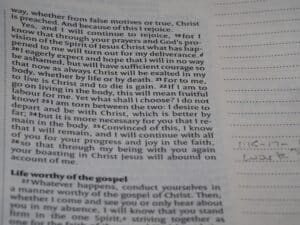 way, whether from false motives or true, Christ
is preached. And because of this I rejoice.
Yes, and I will continue to rejoice, 19for I
know that through your prayers and God's pro-
vision of the Spirit of Jesus Christ what has hap-
pened to me will turn out for my deliverance.
20I eagerly expect and hope that I will in no way
be ashamed, but will have sufficient courage so
that now as always Christ will be exalted in my
body, whether by life or by death. 21For to me,
to live is Christ and to die is gain. 22If I am to
go on living in the body, this will mean fruitful
labour for me. Yet what shall I choose? I do not
know! 23I am torn between the two: I desire to
depart and be with Christ, which is better by
far; 24but it is more necessary for you that I re-
main in the body. 25Convinced of this, I know
that I will remain, and I will continue with all
of you for your progress and joy in the faith,
26so that through my being with you again
your boasting in Christ Jesus will abound on
account of me.
Life worthy of the gospel
27Whatever happens, conduct yourselves in
a manner worthy of the gospel of Christ. Then,
whether I come and see you or only hear about
you in my absence, I will know that you stand
firm in the one Spirit, striving together as